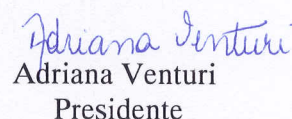 Adriana Venturi
Adriana Venturi
Presidente